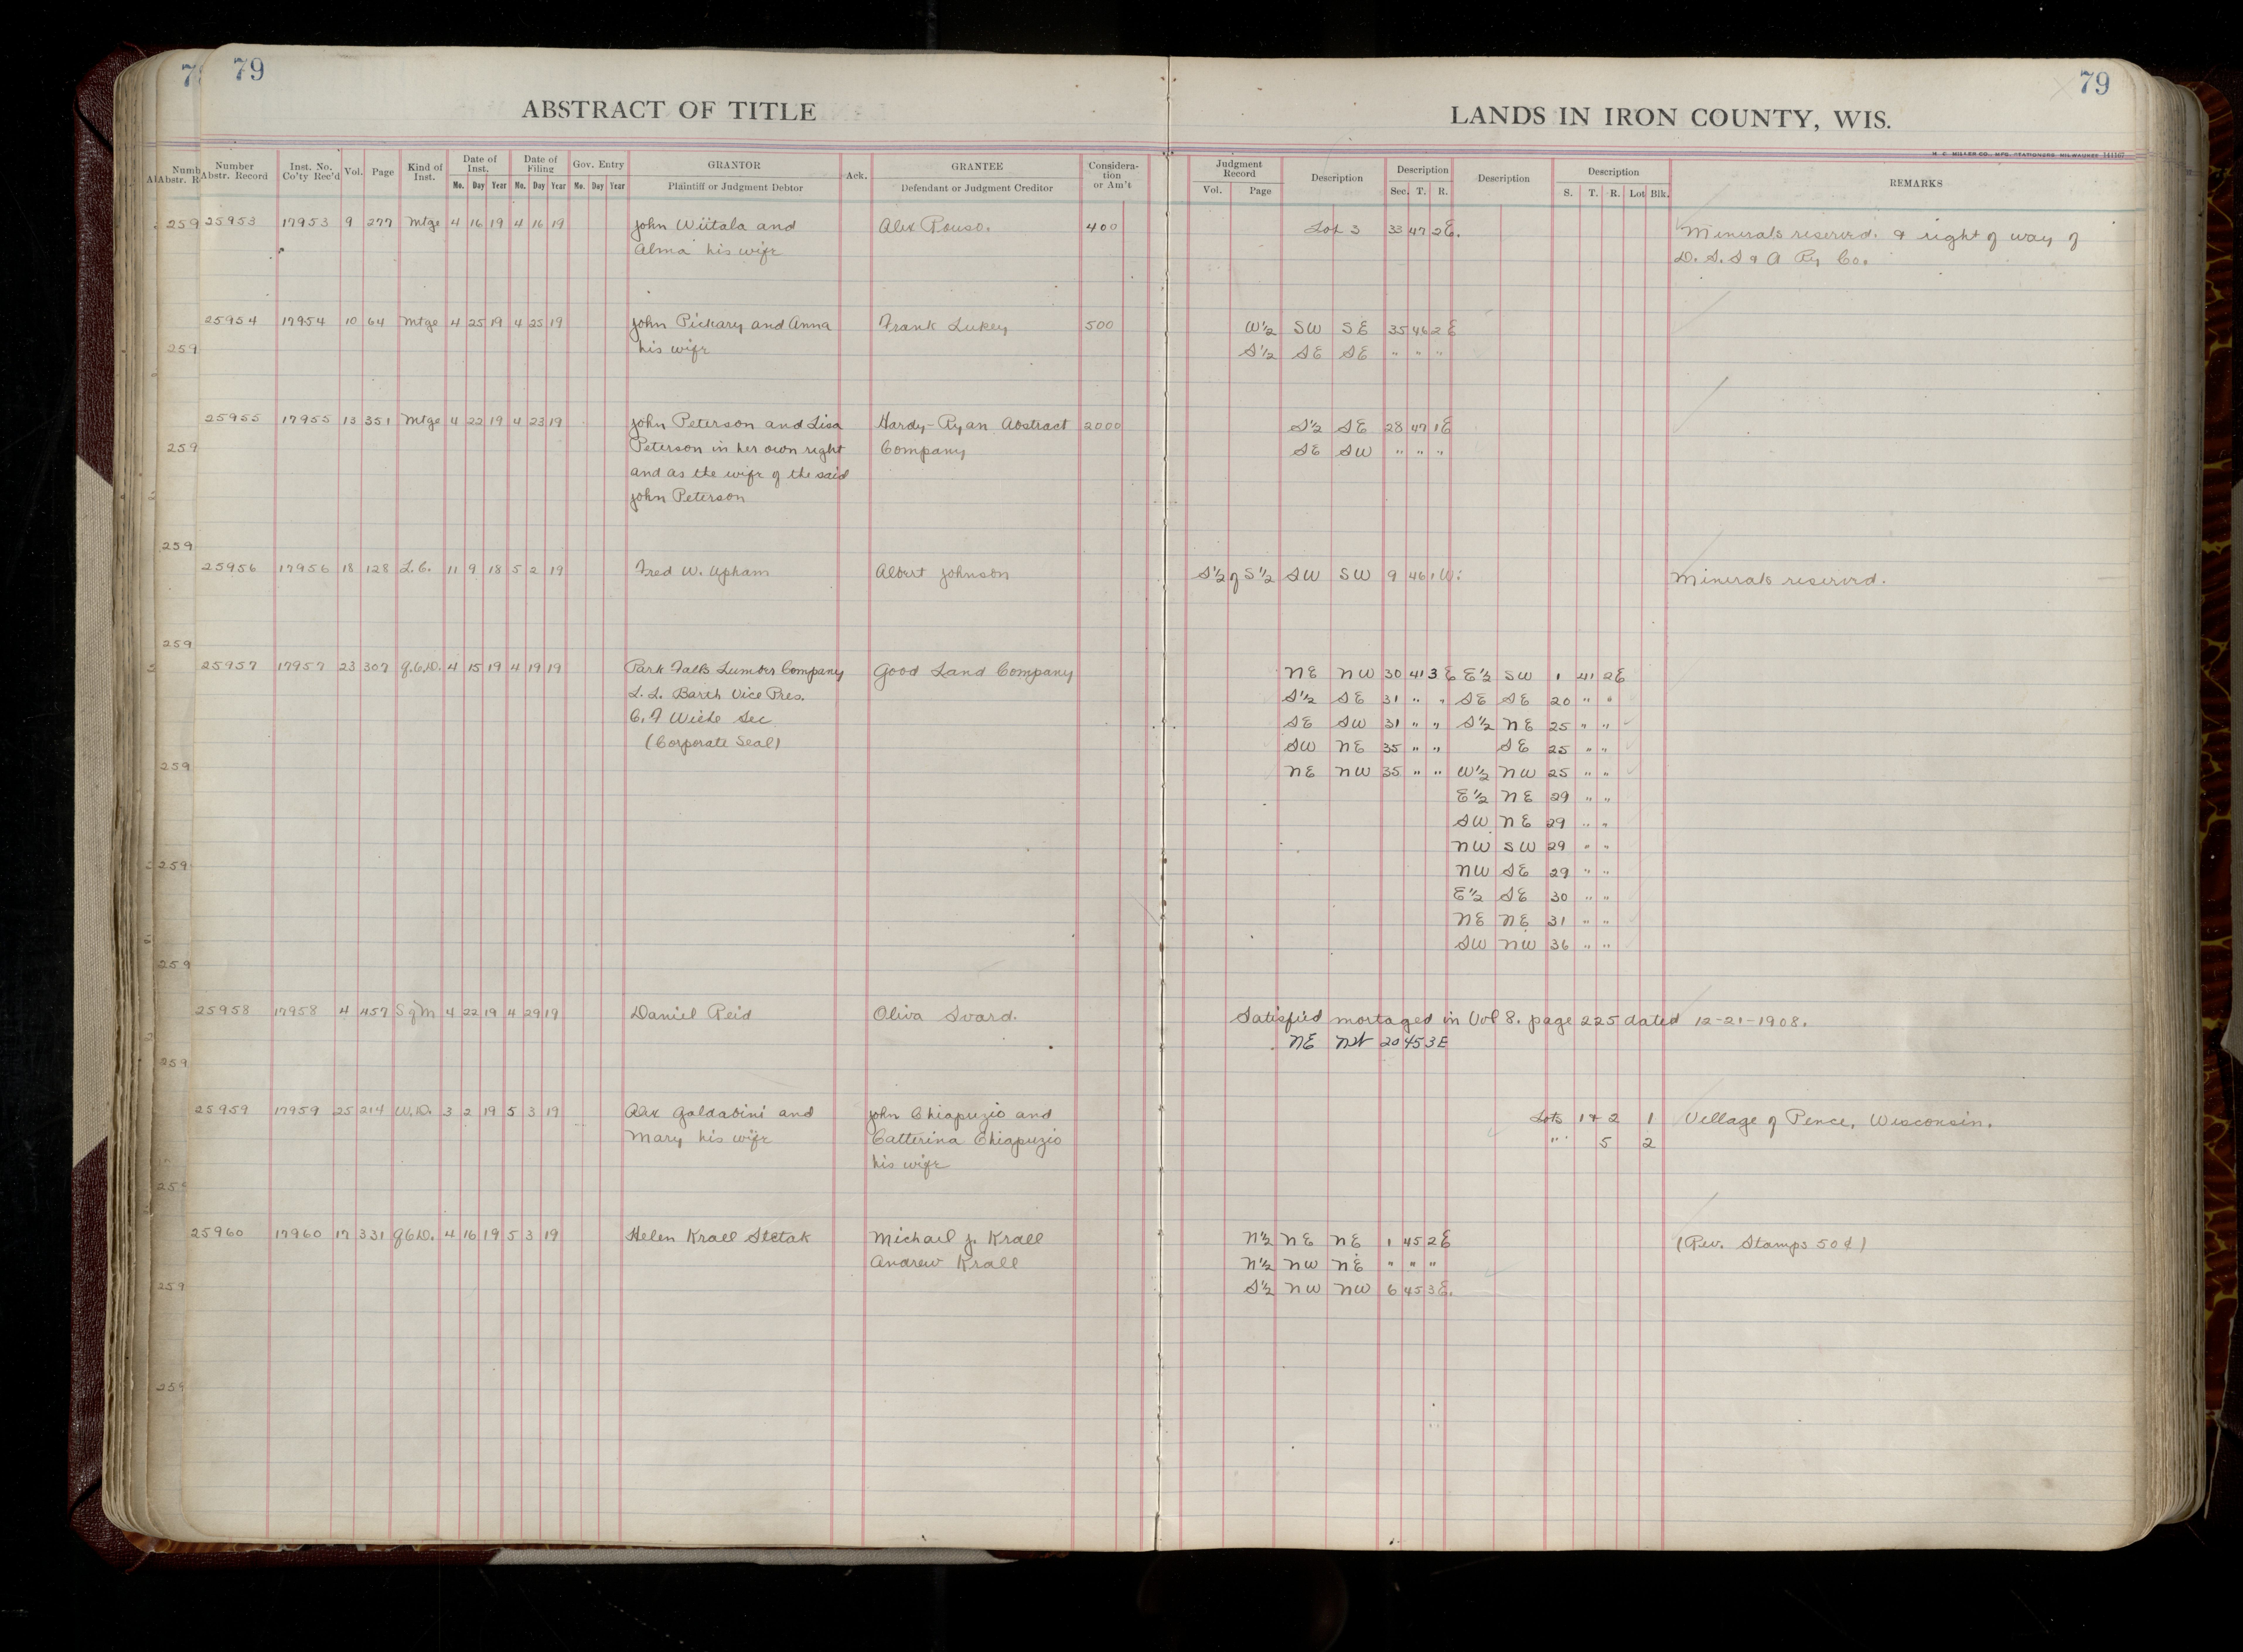 79
79
ABSTRACT OF TITLE
LANDS IN IRON COUNTY, WIS.
H. C. MILLER CO., MFG. STATIONERS, MILWAUKEE
Number Abstr. Record Inst. No. Co'ty Rec'd Vol. Page Kind of Inst. Date of Inst. Mo. Day Year Date of Filing Mo. Day Year Gov. Entry Mo. Day Year GRANTOR Plaintiff or Judgment Debtor Ack. GRANTEE Defendant or Judgment Creditor Considera-tion or Am't Judgment Record Vol. Page Description Description Sec. T. R. Description Description S. T. R. Lot Blk. REMARKS
25953 17953 9 277 Mtge 4 16 19 4 16 19 John Wiitala and Alex Rouso. 400 Lot 3 33 47 2E. Minerals reserved. & right of way of
Alma his wife D. S. S & A Ry Co.
25954 17954 10 64 Mtge 4 25 19 4 25 19 John Pickary and Anna Frank Lukey 500 W½ SW SE 35 46 2E
his wife S½ SE SE " " "
25955 17955 13 351 Mtge 4 22 19 4 23 19 John Peterson and Lisa Hardy-Ryan Abstract 2000 S½ SE 28 47 1E
Peterson in her own right Company SE SW " " "
and as the wife of the said
John Peterson
25956 17956 18 128 L.C. 11 9 18 5 2 19 Fred W. Upham Albert Johnson S½ of S½ SW SW 9 46 1W. Minerals reserved.
25957 17957 23 307 Q.C.D. 4 15 19 4 19 19 Park Falls Lumber Company Good Land Company NE NW 30 41 3E E½ SW 1 41 2E
L. L. Barth Vice Pres. S½ SE 31 " " SE SE 20 " "
C. F Wiehe Sec SE SW 31 " " S½ NE 25 " "
(Corporate Seal) SW NE 35 " " SE 25 " "
NE NW 35 " " W½ NW 25 " "
E½ NE 29 " "
SW NE 29 " "
NW SW 29 " "
NW SE 29 " "
E½ SE 30 " "
NE NE 31 " "
SW NW 36 " "
25958 17958 4 457 S of M 4 22 19 4 29 19 Daniel Reid Oliva Svard. Satisfied mortaged in Vol 8. page 225 dated 12-21-1908.
NE NW 20 45 3E
25959 17959 25 214 W.D. 3 2 19 5 3 19 Alex Galdabini and John Chiapuzio and Lots 1 & 2 1 Village of Pence, Wisconsin.
Mary his wife Catterina Chiapuzio " 5 2
his wife
25960 17960 17 331 QCD. 4 16 19 5 3 19 Helen Krall Stetak Michael J. Krall N½ NE NE 1 45 2E (Rev. Stamps 50¢)
Andrew Krall N½ NW NE " " "
S½ NW NW 6 45 3E.